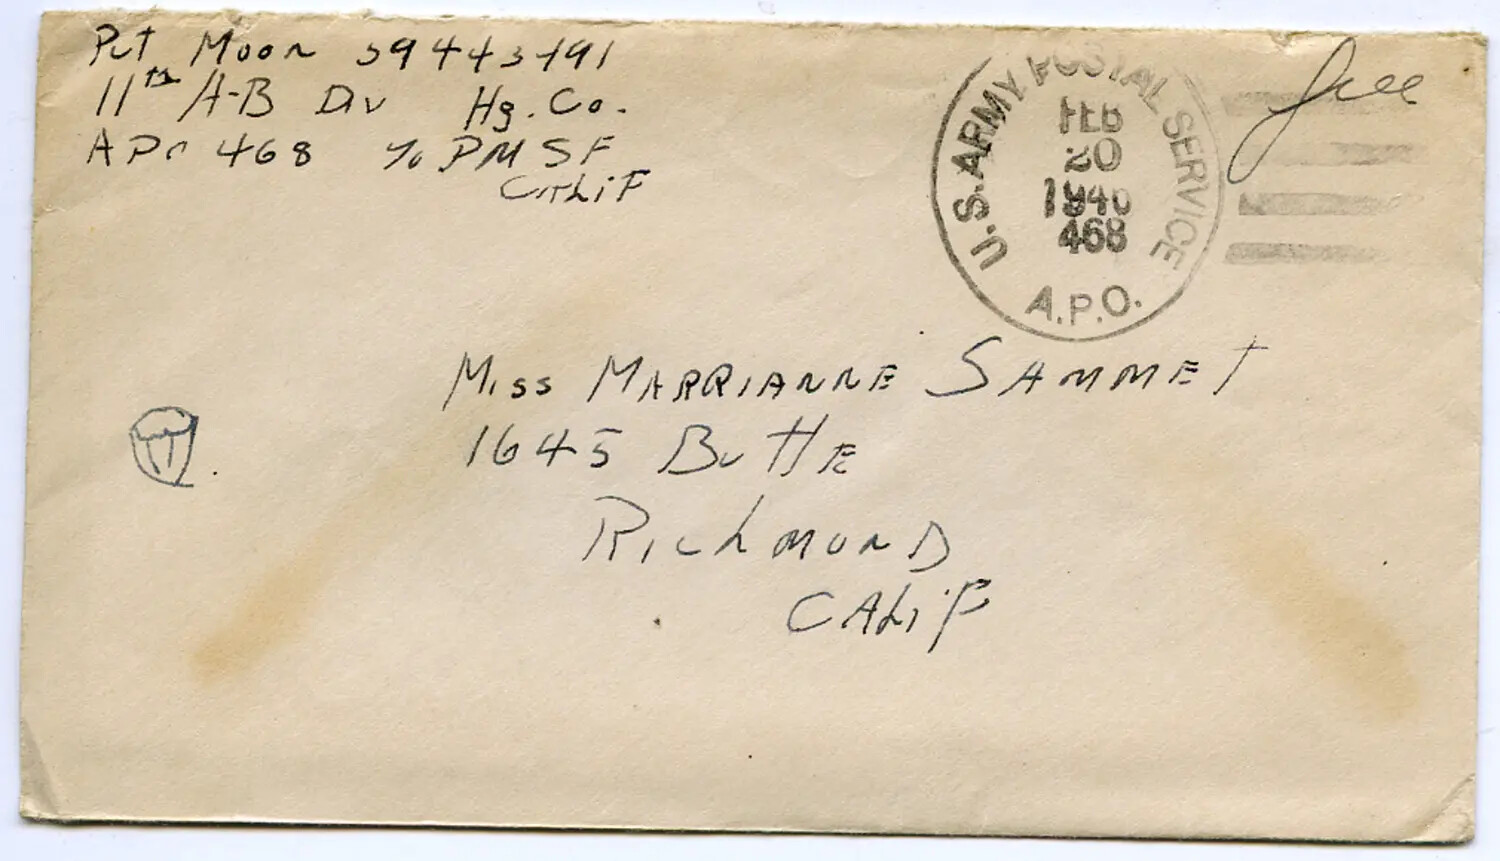 Pvt Moon 39443491
11th A-B Div Hq. Co.
APO 468 c/o PM SF
CALiF
U.S. ARMY POSTAL SERVICE
FEB
20
1946
468
A.P.O.
free
Miss MARRIANNE SAMMET
1645 ButtE
RichmonD
CALiF